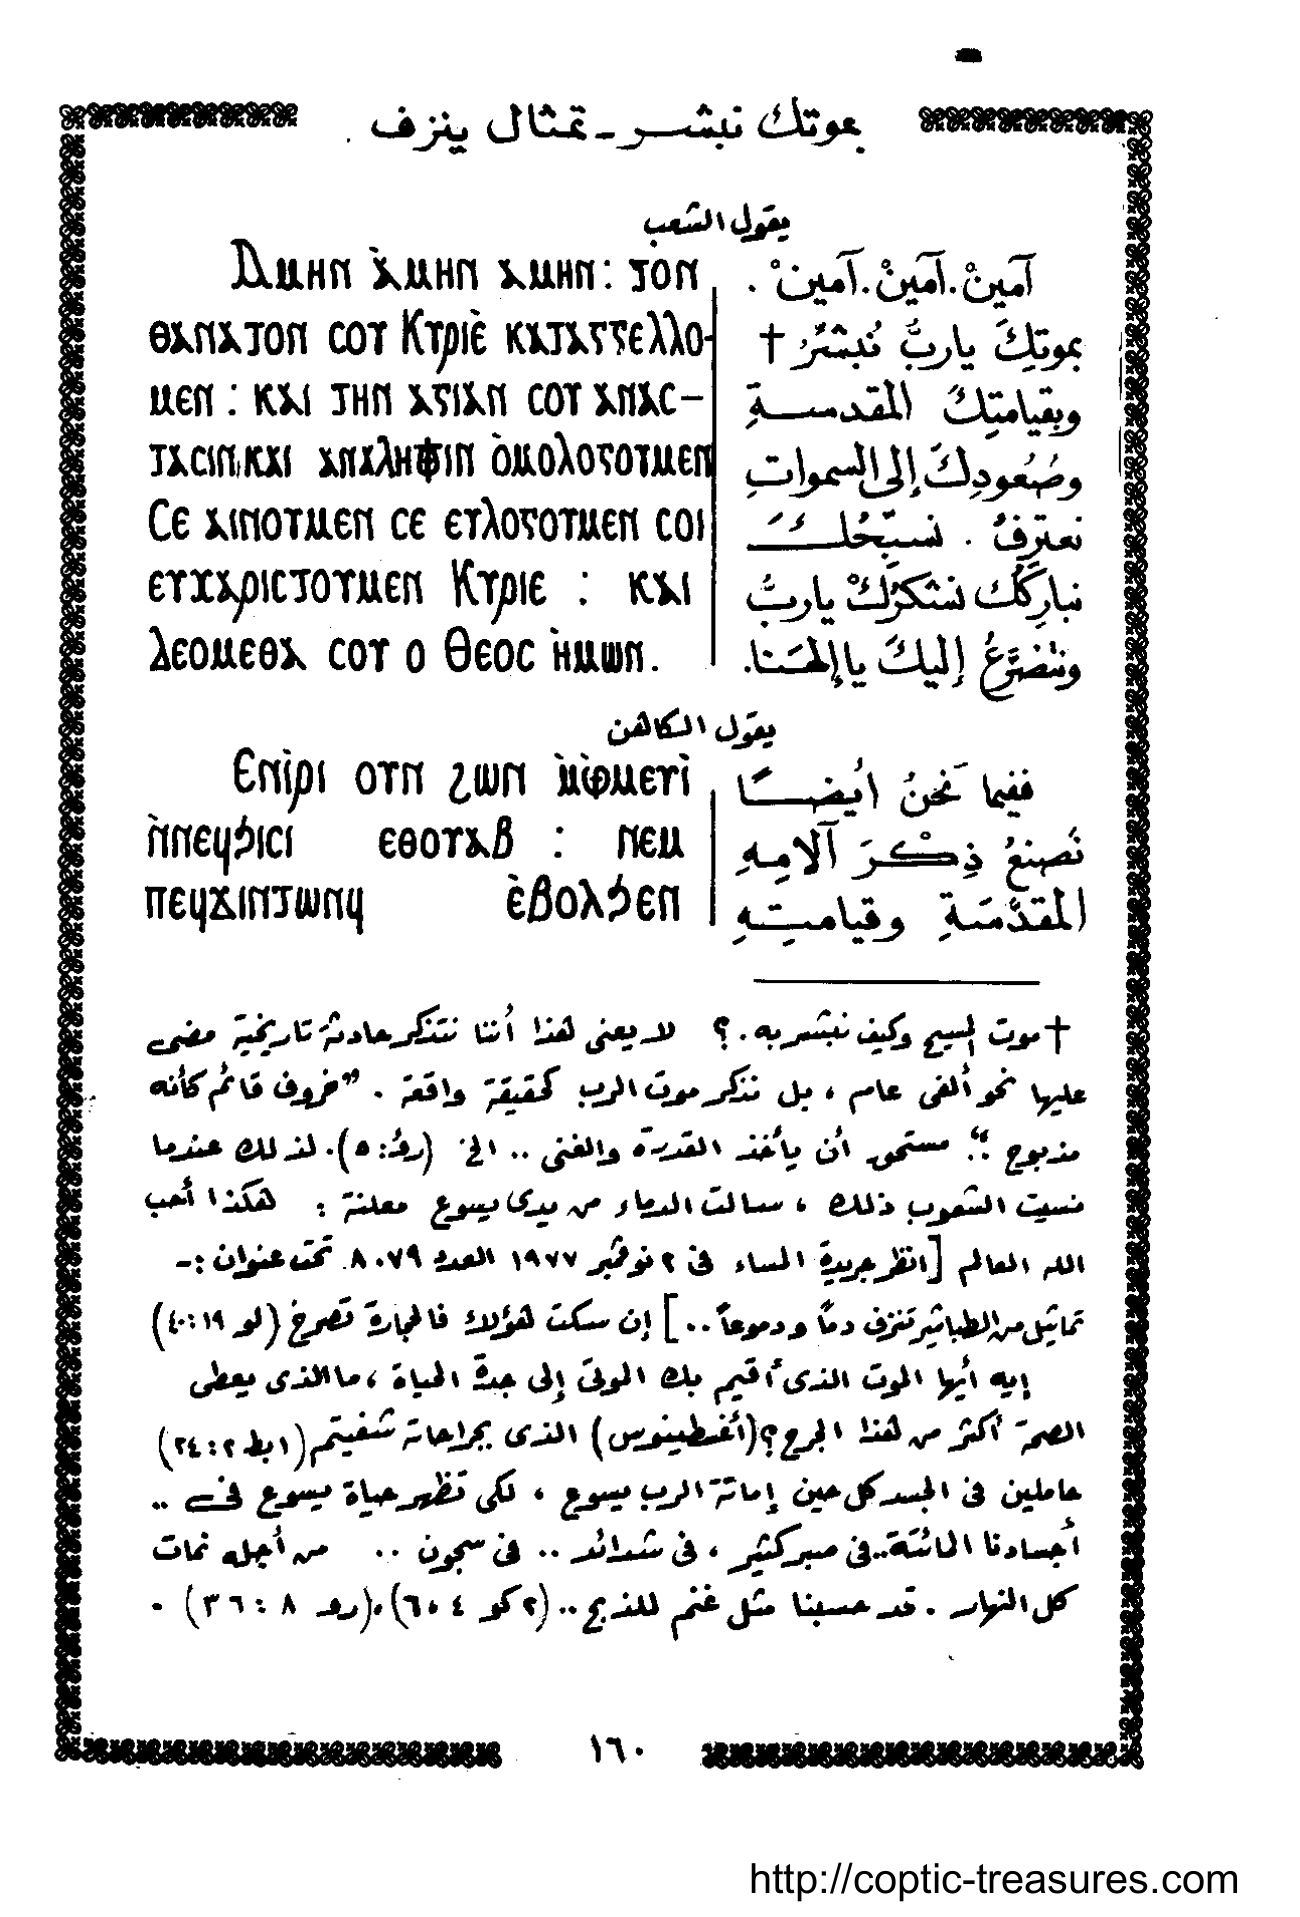 بموتك نبشر - تمثال ينزف .
يقول الشعب
Ⲁⲙⲏⲛ ⲁ̀ⲙⲏⲛ ⲁⲙⲏⲛ : ⲧⲟⲛ
ⲑⲁⲛⲁⲧⲟⲛ ⲥⲟⲩ Ⲕⲩⲣⲓⲉ̀ ⲕⲁⲧⲁⲅⲅⲉⲗⲗⲟ-
ⲙⲉⲛ : ⲕⲁⲓ ⲧⲏⲛ ⲁⲅⲓⲁⲛ ⲥⲟⲩ ⲁⲛⲁⲥ-
ⲧⲁⲥⲓⲛ: ⲕⲁⲓ ⲁⲛⲁⲗⲏⲯⲓⲛ ⲟ̀ⲙⲟⲗⲟⲅⲟⲩⲙⲉⲛ
Ⲥⲉ ⲁⲓⲛⲟⲩⲙⲉⲛ ⲥⲉ ⲉⲩⲗⲟⲅⲟⲩⲙⲉⲛ ⲥⲟⲓ
ⲉⲩⲭⲁⲣⲓⲥⲧⲟⲩⲙⲉⲛ Ⲕⲩⲣⲓⲉ : ⲕⲁⲓ
ⲇⲉⲟⲙⲉⲑⲁ ⲥⲟⲩ ⲟ Ⲑⲉⲟⲥ ⲏ̀ⲙⲱⲛ.
آمينْ. آمينْ. آمينْ .
بموتِكَ ياربُّ نُبشرُ †
وبقيامتِكَ المقدسةِ
وصُعودِكَ إلى السمواتِ
نعترفُ . نسبّحُكَ
نباركُكَ نشكرُكَ ياربُّ
ونتضرَّعُ إليكَ ياإلهَنا.
يقول الكاهن
Ⲉⲛⲓ̀ⲣⲓ ⲟⲩⲛ ϩⲱⲛ ⲙ̀ⲫ̀ⲙⲉⲩⲓ̀
ⲛ̀ⲛⲉϥϧⲓⲥⲓ ⲉⲑⲟⲩⲁⲃ : ⲛⲉⲙ
ⲡⲉϥϫⲓⲛⲧⲱⲛϥ ⲉ̀ⲃⲟⲗϧⲉⲛ
ففيما نَحنُ أيضًا
نَصنعُ ذِكْرَ آلامِهِ
المقدَّسَةِ وقيامتِهِ
† موت المسيح وكيف نبشر به .؟ لا يعنى هذا أننا نتذكر حادثة تاريخية مضى
عليها نحو ألفى عام ، بل نذكر موت الرب كحقيقة واقعة . "خروف قائم كأنه
مذبوح ؛؛ مستحق أن يأخذ القدرة والغنى .. الخ (رؤ: ٥). لذلك عندما
نسيت الشعوب ذلك ، سالت الدماء من يدى يسوع معلنة : هكذا أحب
الله العالم [انظر جريدة المساء فى ٢ نوفمبر ١٩٧٧ العدد ٨٠٧٩ تحت عنوان :-
تماثيل من الطباشير تنزف دمًا ودموعاً ..] إن سكت هؤلاء فالحجارة تصرخ (لو ١٩: ٤٠)
إيه أيها الموت الذى أقيم بك الموتى إلى جدة الحياة ، ما الذى يعطى
الصحة أكثر من هذا الجرح ؟ (أغسطينوس) الذى بجراحاته شفيتم (١بط ٢: ٢٤)
حاملين فى الجسد كل حين إماتة الرب يسوع ، لكى تظهر حياة يسوع فى ..
أجسادنا المائتة..فى صبر كثير ، فى شدائد .. فى سجون .. من أجله نمات
كل النهار . قد حسبنا مثل غنم للذبح .. (٢كو ٤ ،٦)،(رو ٨ : ٣٦) .
١٦٠
http://coptic-treasures.com